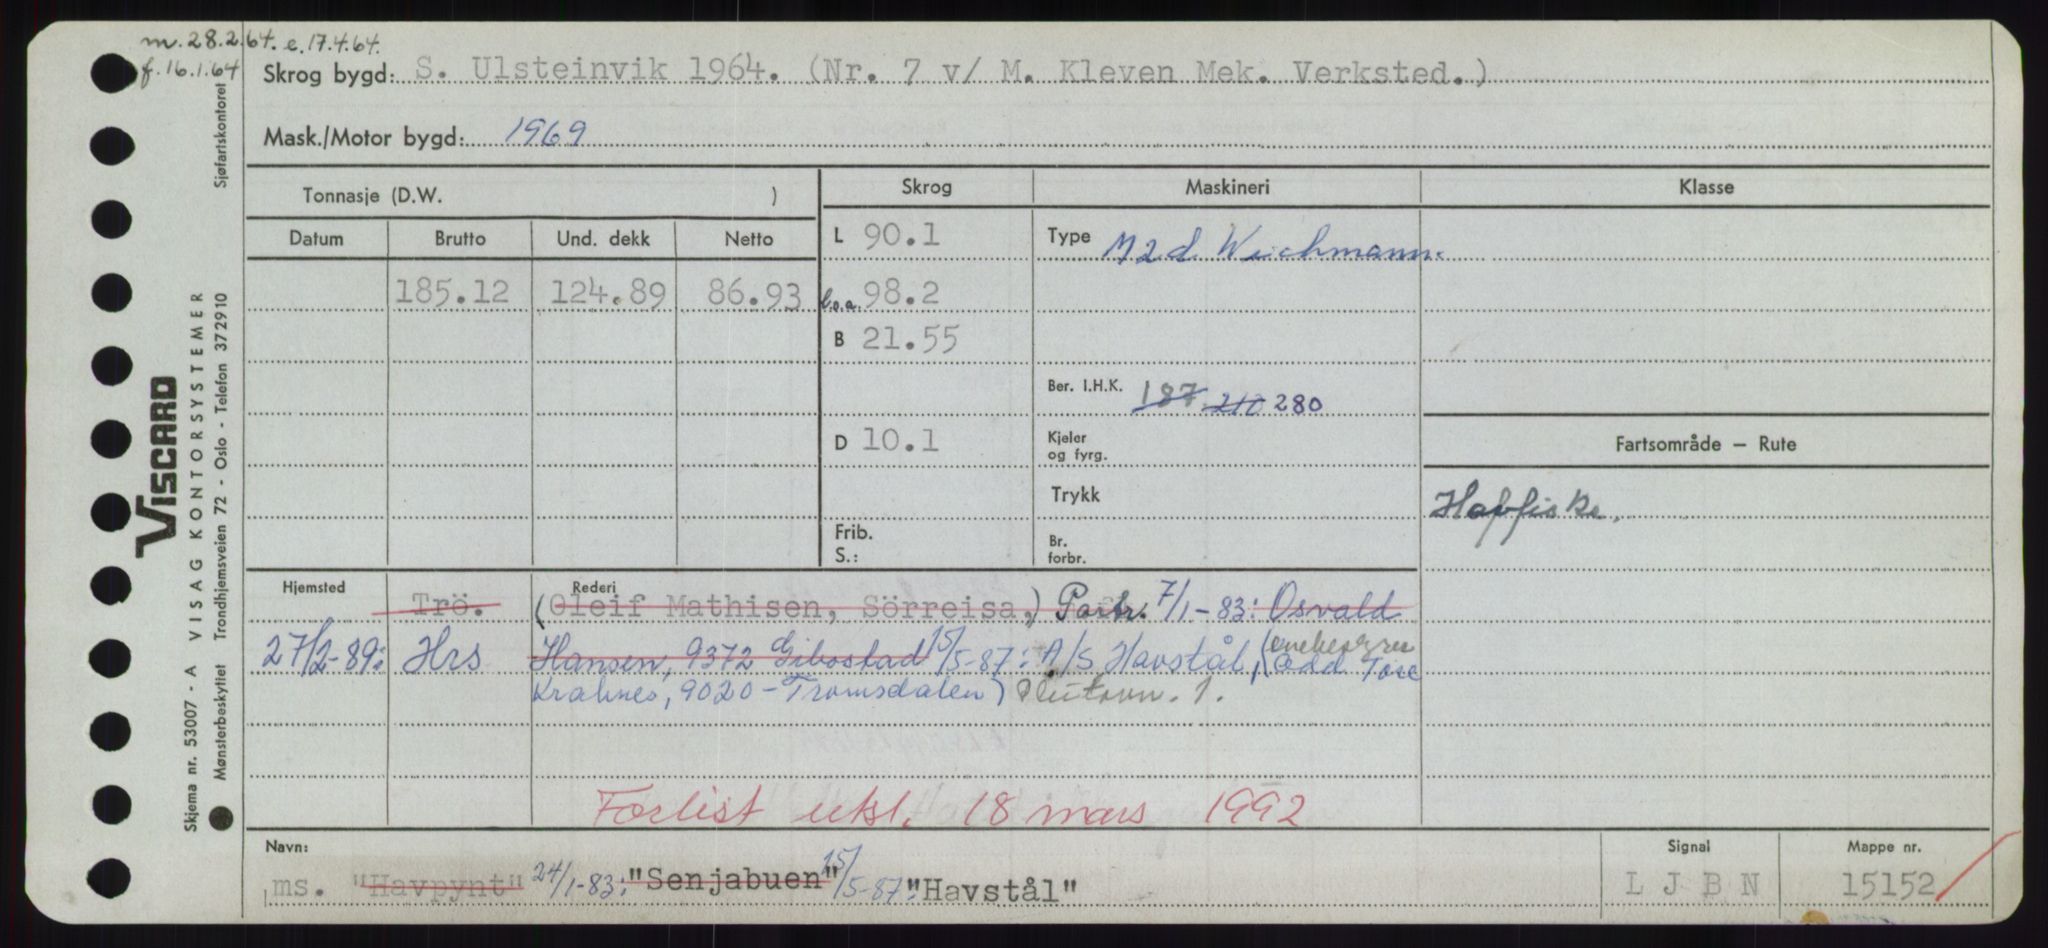 m. 28.2.64. e. 17.4.64.
f. 16.1.64
Skrog bygd: S. Ulsteinvik 1964. (Nr. 7 v/ M. Kleven Mek. Verksted.)
Mask./Motor bygd: 1969
Tonnasje (D.W. )
Datum Brutto Und. dekk Netto
185.12 124.89 86.93
Skrog
L 90.1
l.o.a. 98.2
B 21.55
D 10.1
Frib.
S.:
Maskineri
Type M2d. Wichmann.
Ber. I.H.K. 187 210 280
Kjeler
og fyrg.
Trykk
Br.
forbr.
Klasse
Fartsområde – Rute
Havfiske.
Hjemsted Rederi
Trö. (Oleif Mathisen, Sörreisa,) Partr. 7/1-83: Osvald
27/2-89: Hrs Hansen, 9372 Gibostad 15/5-87: A/S Havstål, (Odd Tore
Kraknes, 9020 - Tromsdalen) Plutovn. 1.
Forlist utsl. 18 mars 1992
Navn: Signal Mappe nr.
ms. "Havpynt" 24/1-83: "Senjabuen" 15/5-87: "Havstål" L J B N 15152
Viscard
VISAG KONTORSYSTEMER
Skjema nr. 53007 - A
Mønsterbeskyttet Trondhjemsveien 72 - Oslo - Telefon 372910 Sjøfartskontoret